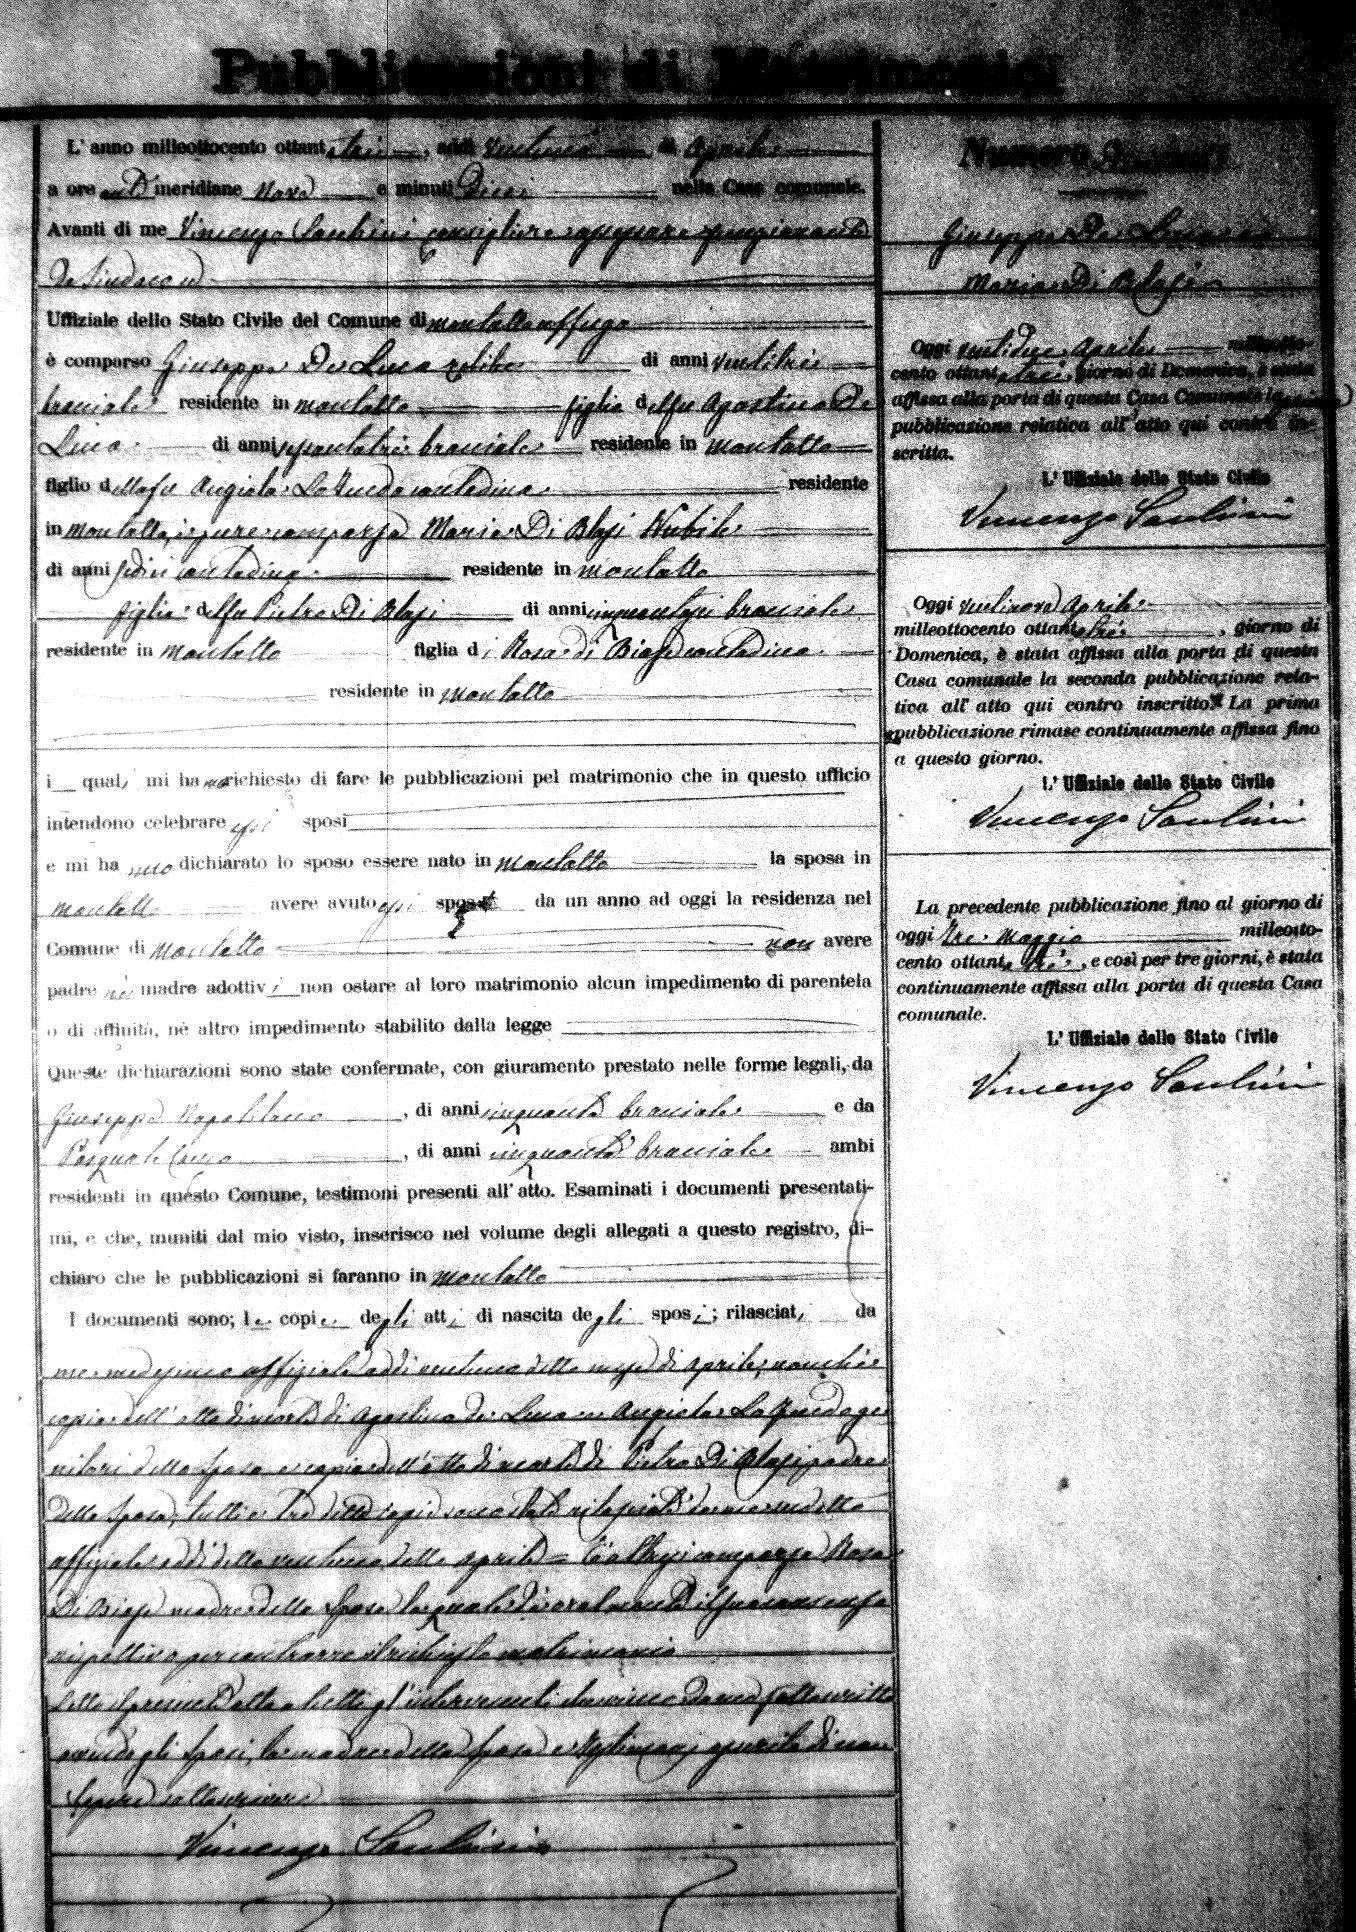 Pubblicazioni di Matrimonio
L' anno milleottocento ottantatrè, addì ventuno di Aprile
a ore anti meridiane nove e minuti dieci nella Casa comunale.
Avanti di me Vincenzo Sanlini consigliere funzionante
da Sindaco
Uffiziale dello Stato Civile del Comune di Montalto uffugo
è comparso Giuseppe De Luca celibe di anni ventitrè
bracciale residente in Montalto figlio del fu Agostino De
Luca di anni bracciale residente in Montalto
figlio della fu Angiola contadina residente
in Montalto, è pure comparsa Maria Di Blasi Nubile
di anni sedici contadina residente in Montalto
figlia del fu Pietro Di Blasi di anni bracciale
residente in Montalto figlia di Rosa di Biase contadina
residente in Montalto
i quali mi hanno richiesto di fare le pubblicazioni pel matrimonio che in questo ufficio
intendono celebrare essi sposi
e mi hanno dichiarato lo sposo essere nato in Montalto la sposa in
Montalto avere avuto essi sposi da un anno ad oggi la residenza nel
Comune di Montalto non avere
padre nè madre adottivi non ostare al loro matrimonio alcun impedimento di parentela
o di affinità, nè altro impedimento stabilito dalla legge
Queste dichiarazioni sono state confermate, con giuramento prestato nelle forme legali, da
Giuseppe Napolitano, di anni cinquanta bracciale e da
Pasquale, di anni cinquanta bracciale ambi
residenti in questo Comune, testimoni presenti all' atto. Esaminati i documenti presentati-
mi, e che, muniti dal mio visto, inserisco nel volume degli allegati a questo registro, di-
chiaro che le pubblicazioni si faranno in Montalto
I documenti sono; le copie degli atti di nascita degli sposi; rilasciati da
me medesimo uffiziale addì ventuno detto mese di Aprile; nonchè
copia dell' atto di morte di Agostino de Luca e Angiola ge
nitori dello sposo e copia dell' atto di morte di Pietro Di Blasi padre
della sposa, tutte e tre dette copie sono state rilasciate da me suddetto
uffiziale addì detto ventuno detto Aprile = È altresì comparsa Rosa
Di Biase madre della sposa la quale dà oralmente il suo consenso
rispettivo per contrarre il richiesto matrimonio
Letto il presente atto a tutti gl' intervenuti da me sottoscritto
avendo gli sposi, la madre della sposa e testimoni asserito di non
sapere sottoscrivere
Vincenzo Sanlini
Numero
Giuseppe De Luca
Maria Di Blasi
Oggi ventidue Aprile milleotto-
cento ottantatrè, giorno di Domenica, è stata
affissa alla porta di questa Casa Comunale la prima
pubblicazione relativa all' atto qui contro in-
scritta.
L' Uffiziale dello Stato Civile
Vincenzo Sanlini
Oggi ventinove Aprile
milleottocento ottantatrè, giorno di
Domenica, è stata affissa alla porta di questa
Casa comunale la seconda pubblicazione rela-
tiva all' atto qui contro inscritto. La prima
pubblicazione rimase continuamente affissa fino
a questo giorno.
L' Uffiziale dello Stato Civile
Vincenzo Sanlini
La precedente pubblicazione fino al giorno di
oggi tre Maggio milleotto-
cento ottantatrè, e così per tre giorni, è stata
continuamente affissa alla porta di questa Casa
comunale.
L' Uffiziale dello Stato Civile
Vincenzo Sanlini